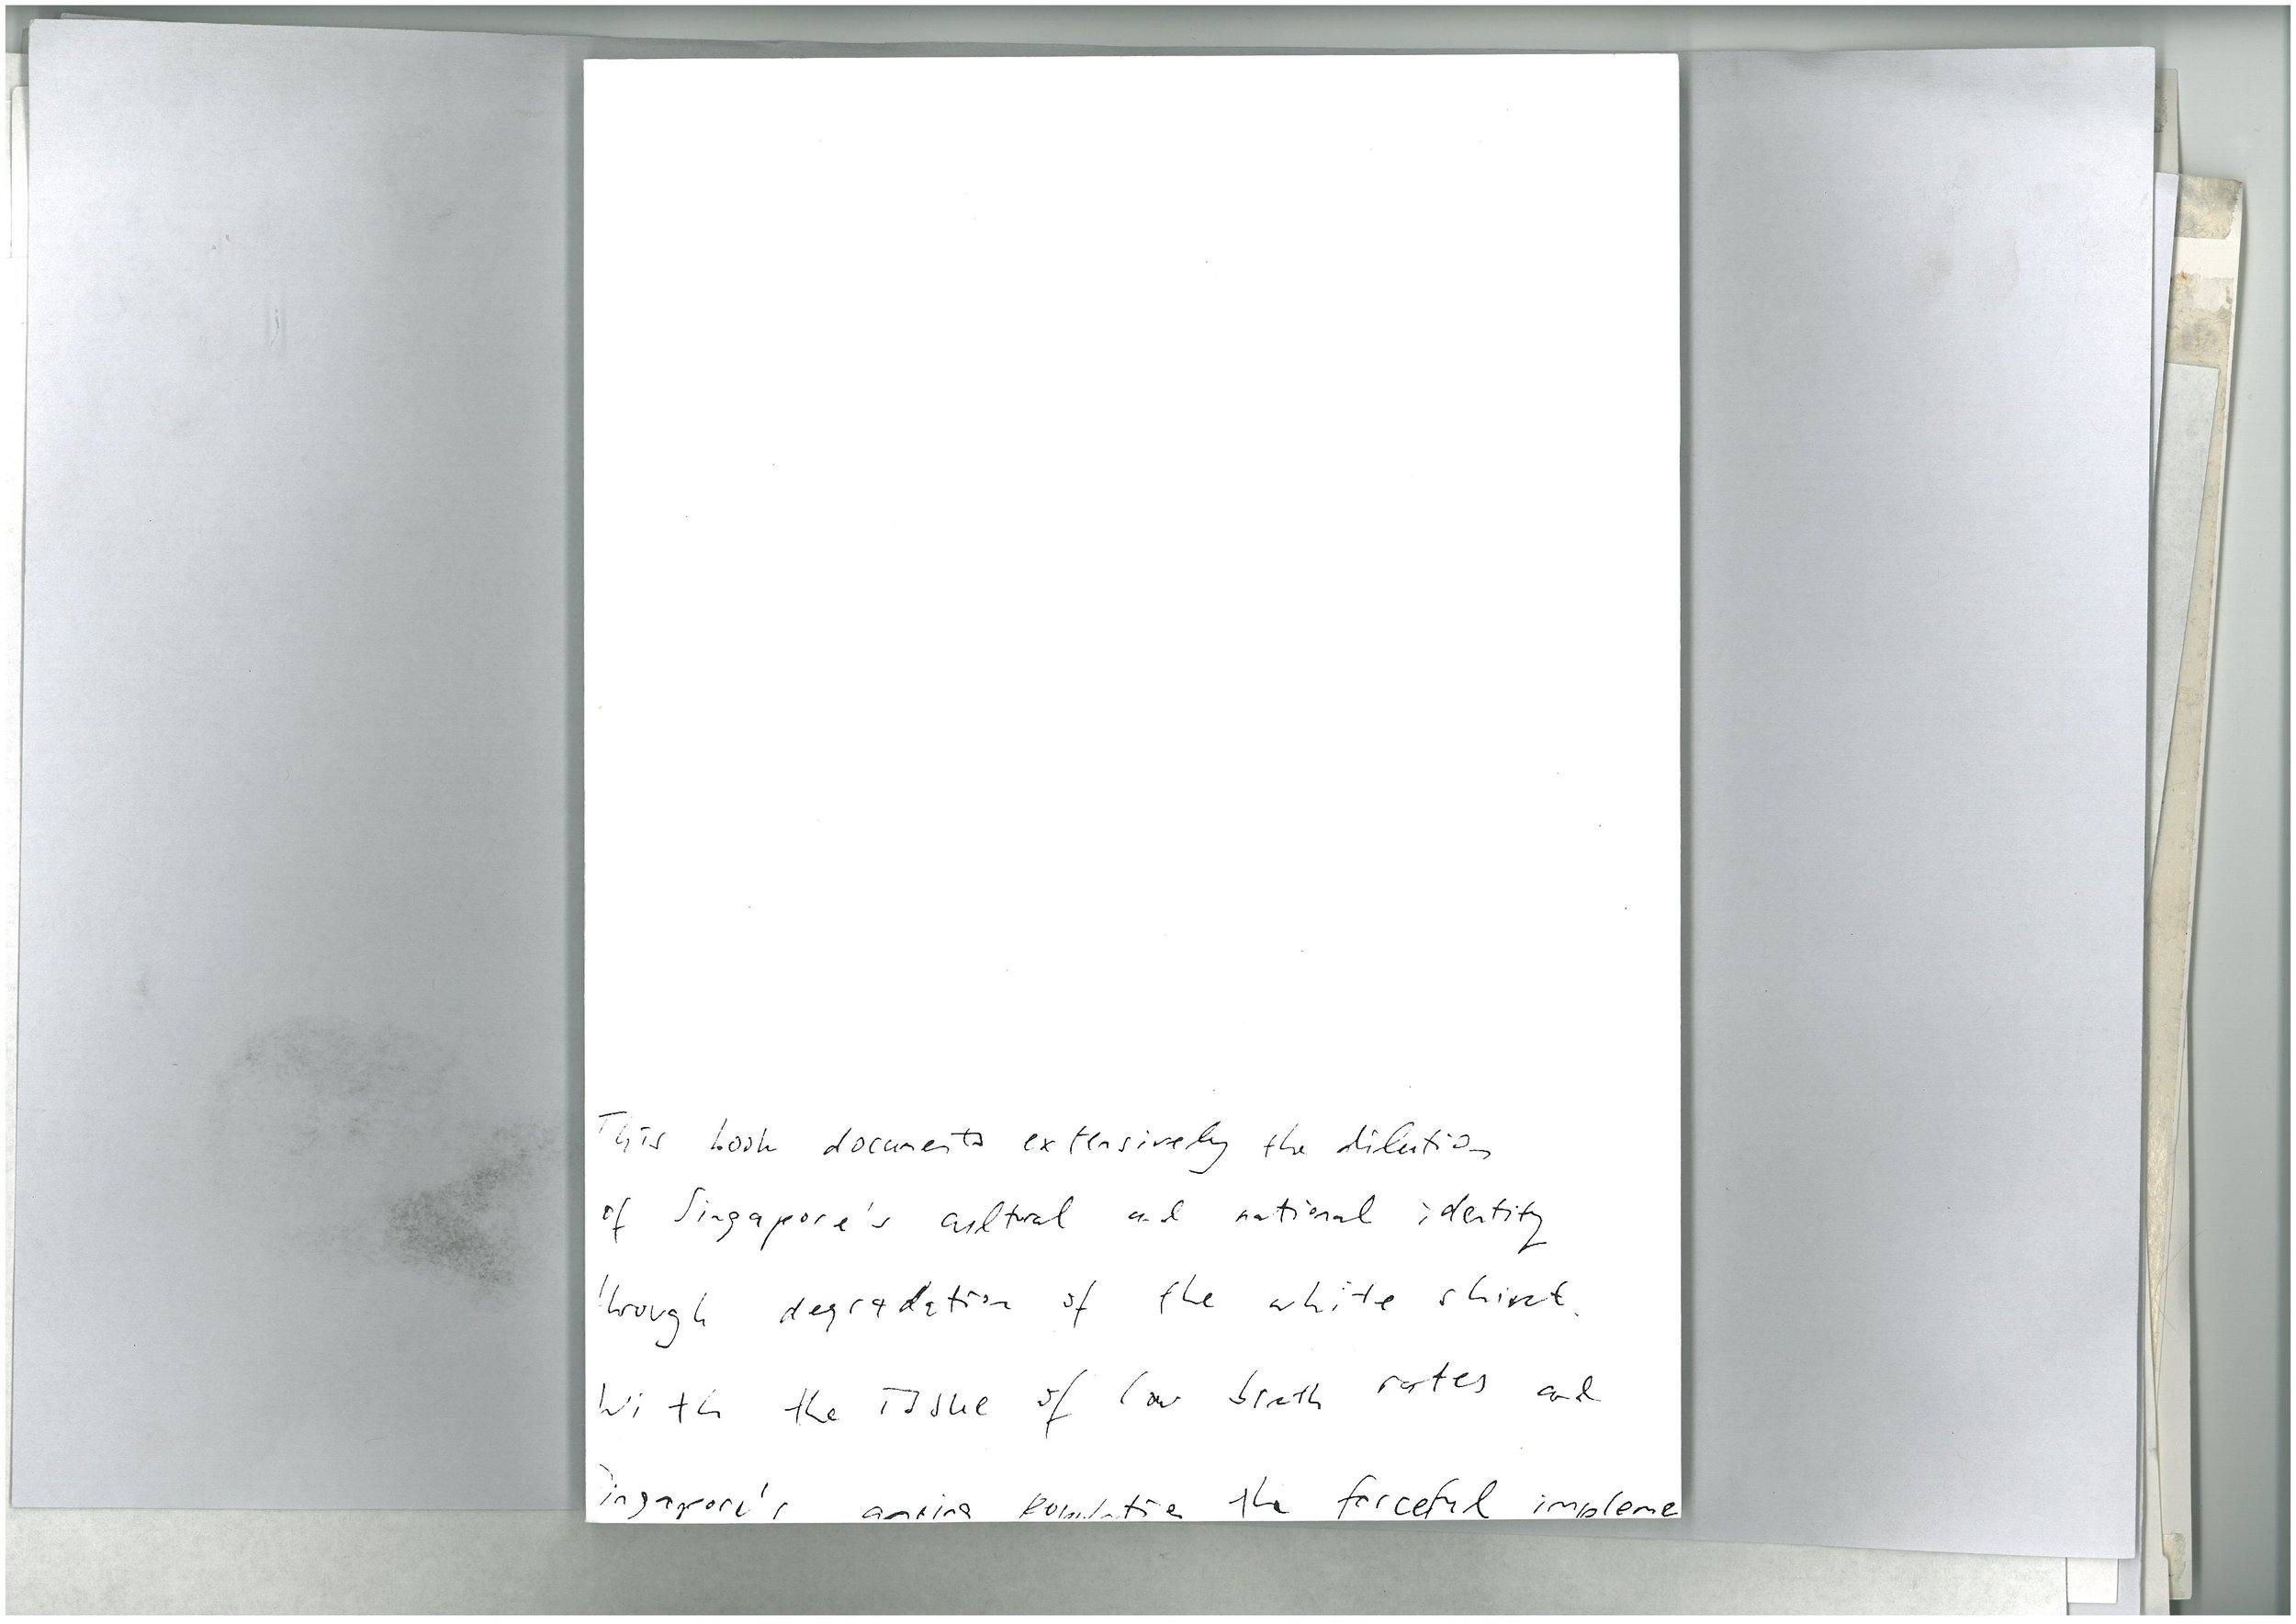 This book documents extensively the dilution
of Singapore's cultural and national identity
through degradation of the white shirt.
With the issue of low birth rates and
Singapore's the forceful impleme